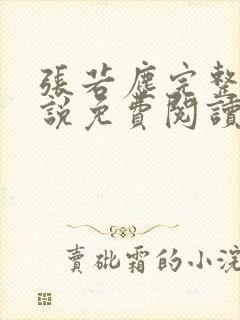 張若塵完整
說免費閱讀
賣砒霜的小浣